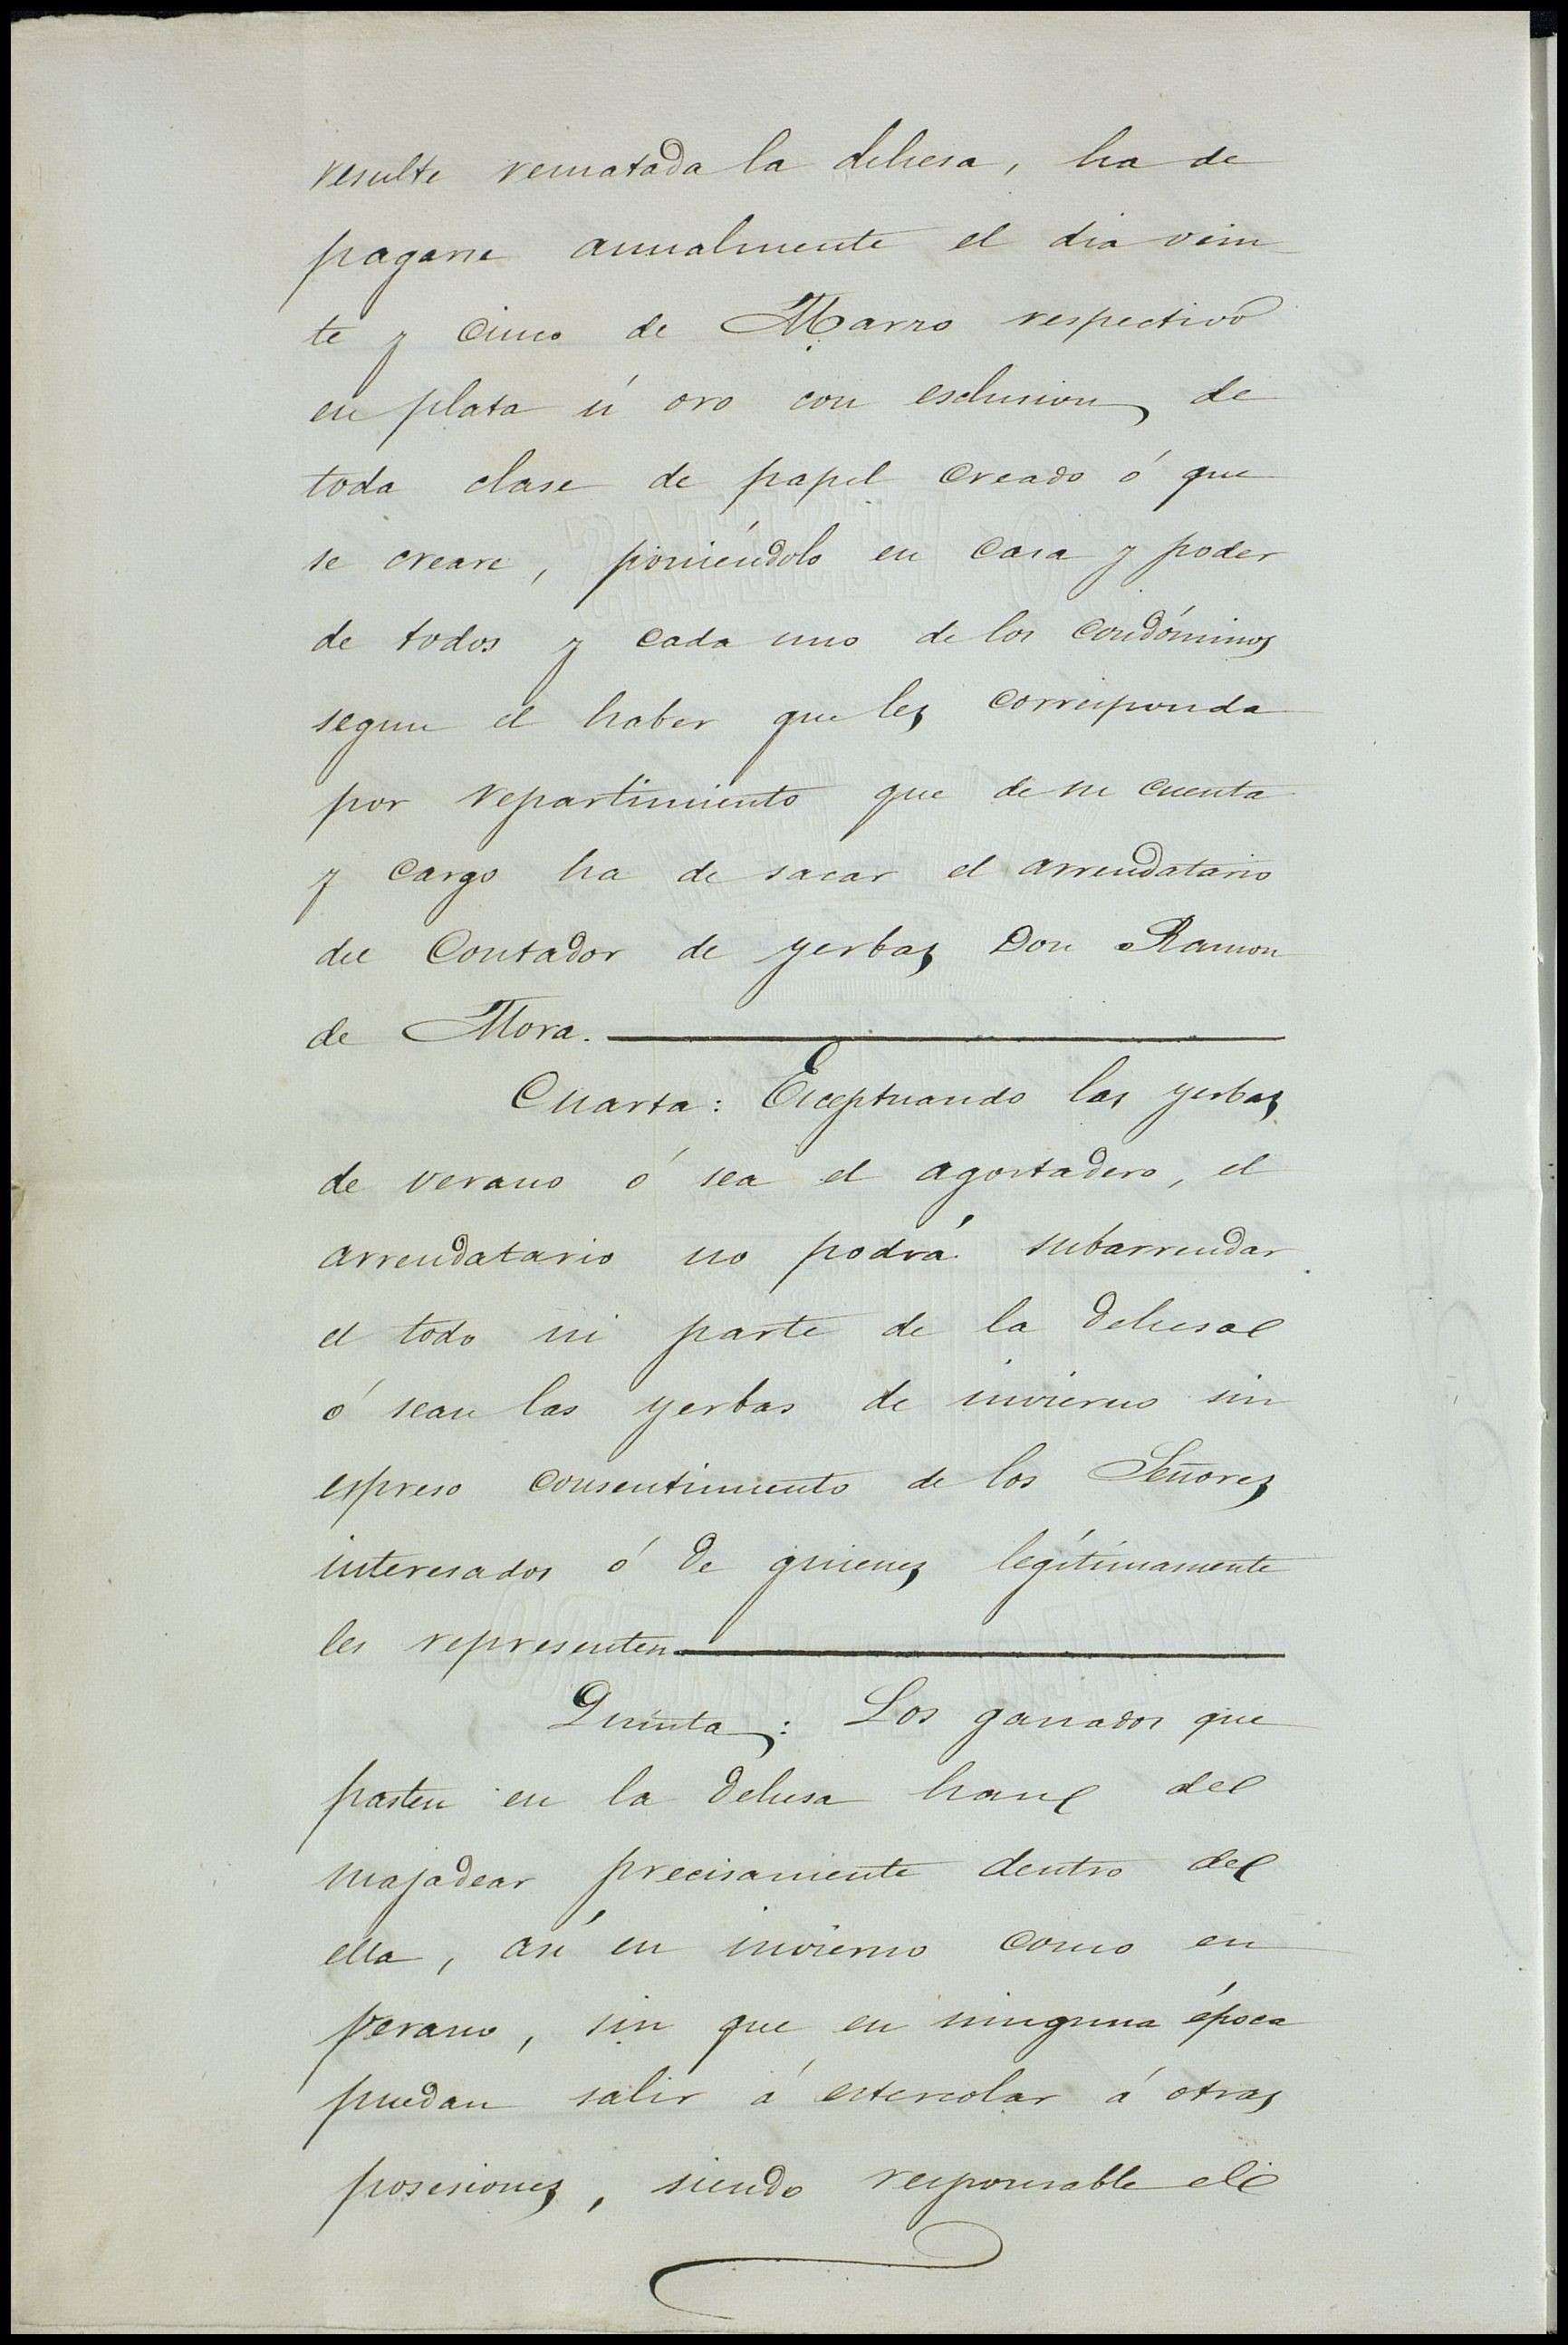 resulte rematada la dehesa, ha de
pagarse anualmente el dia vein
te y cinco de Marzo respectivo
en plata ú oro con esclusion de
toda clase de papel creado ó que
se creare, poniéndolo en casa y poder
de todos y cada uno de los condóminos
segun el haber que les corresponda
por repartimiento que de su cuenta
y cargo ha de sacar el arrendatario
del Contador de yerbas Don Ramon
de Mora.
Cuarta: Esceptuando las yerbas
de verano ó sea el agostadero, el
arrendatario no podrá subarrendar
el todo ni parte de la dehesa
ó sean las yerbas de invierno sin
espreso consentimiento de los Señores
interesados ó de quienes legítimamente
les representen.
Quinta: Los ganados que
pasten en la dehesa han de
majadear precisamente dentro de
ella, así en invierno como en
verano, sin que en ninguna época
puedan salir á estercolar á otras
posesiones, siendo responsable el